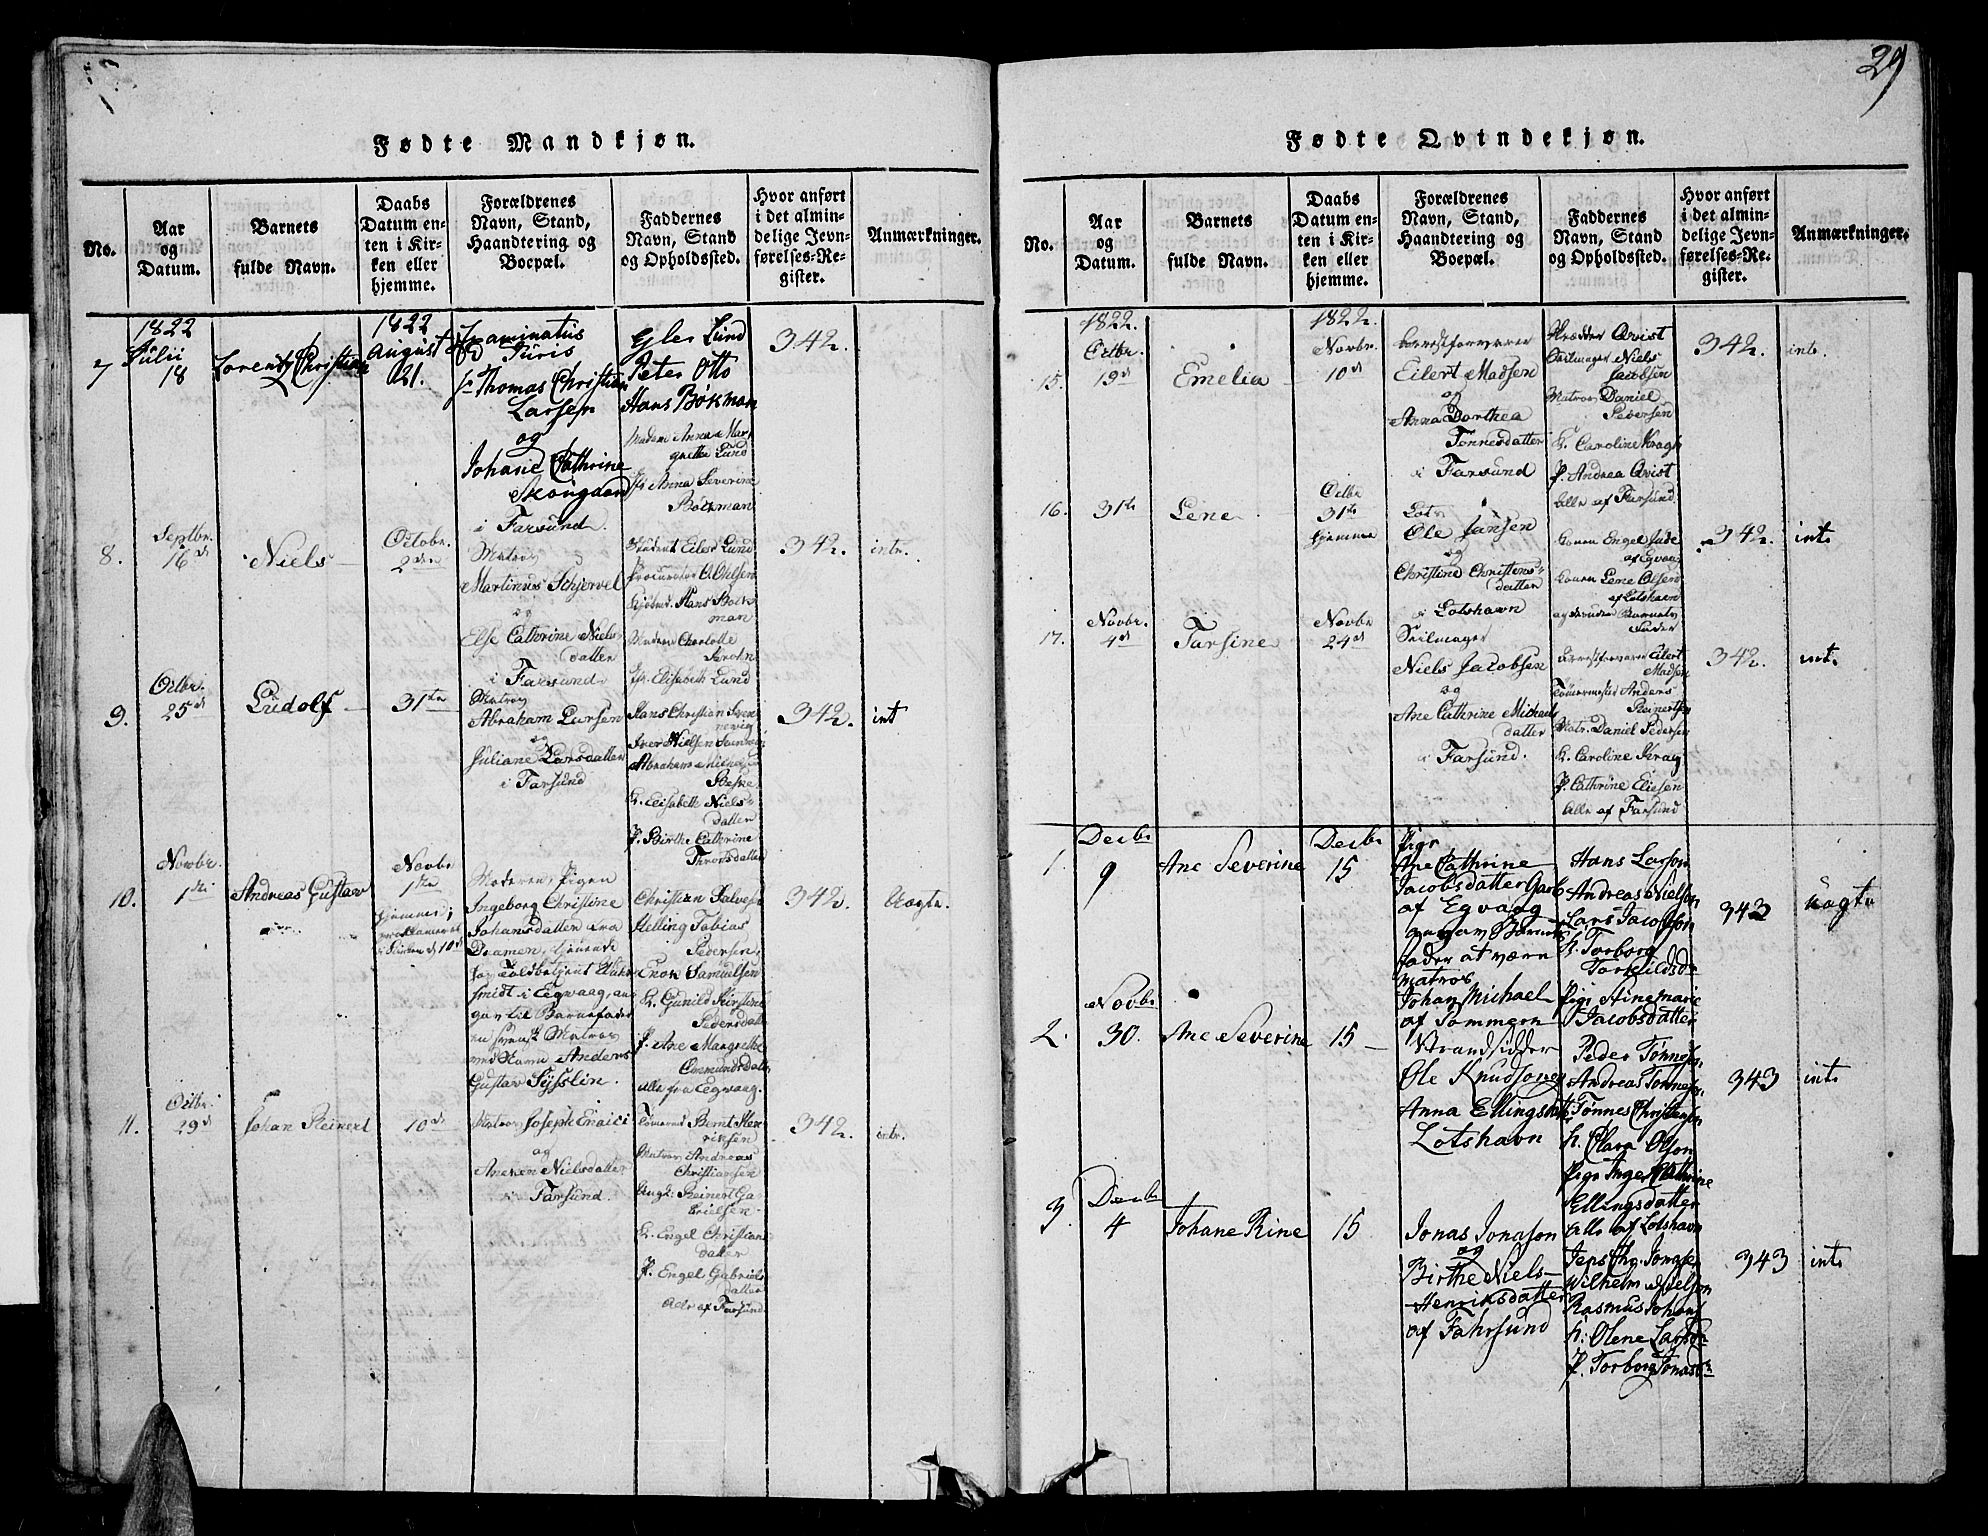 29
Fødte Mandkjøn.
No.
Aar
og
Datum.
Barnets
fulde Navn.
Daabs
Datum en-
ten i Kir-
ken eller
hjemme.
Forældrenes
Navn, Stand,
Haandtering og
Boepæl.
Faddernes
Navn, Stand
og Opholdssted.
Hvor anført
i det almin-
delige Jevn-
førelses-Re-
gister.
Anmærkninger.
7
1822
Julii
18
Lorentz Christian
1822
August
21.
Examinatus
Juris
Hr Thomas Christian
Larsen
og
Johane Cathrine
Skougaard
i Farsund.
Gler Lund
Peter Otto
Hans Bøkman
Madam Anna Mar-
grethe Lund
Jfr Anna Severine
Bøckman
342.
8.
Septbr.
16de
Niels
Octobr.
2den
Matros
Martinus Schjervel
og
Else Cathrine Niels-
datter
i Farsund.
Student Eiler Lund
Procurator O. Olsen
Kjøbmd. Hans Bøck-
man
Madam Charlotte
Krohn
Jfr. Elisabeth Lund
342.
intr.
9.
Octbr.
25de
Ludolf
31te
Matros
Abraham Larsen
og
Juliane Larsdatter
i Farsund
Hans Christian Sven-
nevig
Iver Nielsen
Abraham
K. Elisabeth Niels-
datter
P. Birthe Cathrine
Thronsdatter
342.
int
10.
Novbr.
1ste
Andreas Gustav
Novbr
1ste
hjemme;
i Kirken d 10de
Moderen, Pigen
Ingeborg Christine
Johansdatter fra
Dramen, tjenende
for Toldbetjent
Smidt i Egvaag, an-
gav til Barnefader
en svensk Matros
ved Navn Anders
Gustav Sysslin.
Christian Salvesen
Helling Tobias
Pedersen
Enok Samuelsen
K. Gunild Kirstine
Pedersdatter
P. Ane Margrethe
Ommundsdatter
alle fra Egvaag.
342.
Uægte.
11.
Octbr.
29de
Johan Reinert
10de
Matros Joseph Enaici
og
Aneken Nielsdatter
i Farsund.
Tømermd Bernt Hen-
riksen
Matros Andreas
Christiansen
Ungk: Reinert Ga-
brielsen
K. Engel Christians
datter
P. Engel Gabriels
datter
Alle af Farsund
342.
intr.
Fødte Qvindekjøn.
No.
Aar
og
Datum.
Barnets
fulde Navn.
Daabs
Datum en-
ten i Kir-
ken eller
hjemme.
Forældrenes
Navn, Stand,
Haandtering og
Boepæl.
Faddernes
Navn, Stand
og Opholdssted.
Hvor anført
i det almin-
delige Jevn-
førelses-Re-
gister.
Anmærkninger.
15.
1822.
Octbr.
19de
Emelia
1822.
Novbr.
10de
Arrestforvarer
Eilert Madsen
og
Anna Dorthea
Tønnesdatter
i Farsund
Skredder Qvist
Seilmager Niels
Jacobsen
Matros Daniel
Pedersen
K. Caroline Krag
P. Andrea Qvist
Alle af Farsund
342.
intr.
16.
31te
Lene
Octbr
31te
hjemme
Lots
Ole Jansen
og
Christine Christens-
datter
i Lotshavn
Konen Engel Jude
af Egvaag
Konen Lene Olsen
af Lotshavn
og desuden Barnets
Fader
342.
int.
17.
Novbr.
4de
Farsine
Novbr
24de
Seilmager
Niels Jacobsen
og
Ane Cathrine Michaels
datter
i Farsund.
Arrestforvarer Eilert
Madsen
Tømermester Anders
Reinertsen
Matr. Daniel Pedersen
K. Caroline Krag
P. Cathrine Eliesen
Alle af Farsund
342.
int.
1.
Decbr
9
Ane Severine
Decbr
15
Pige
Ane Cathrine
Jacobsdatter
af Egvaag
angav Barnets
fader at være
matros
Johan Michael
af Sommern
Hans Larson
Andreas Nielson
Lars Jacobson
K. Torborg
Torkildsdr
Pige Stine Marie
Jacobsdatter
343
uægte
2.
Novbr
30.
Ane Severine
15
Strandsidder
Ole Knudson og
Anna Ellingsdatter
Lotshavn
Peder Tønnesen
Andreas Tønnesen
Tønnes Christianson
K. Clara Olson
Pige Inger Cathrine
Ellingsdatter
Alle af Lotshavn
343
int.
3.
Decbr
4
Johane Rine
15
Jonas Jonason
og
Birthe Niels-
Henriksdatter
af Fahrsund
Jens Chr. Jonasen
Wilhelm Nielson
Rasmus Johans
K. Olene Larson
P. Torborg Jonasdr
343
int.